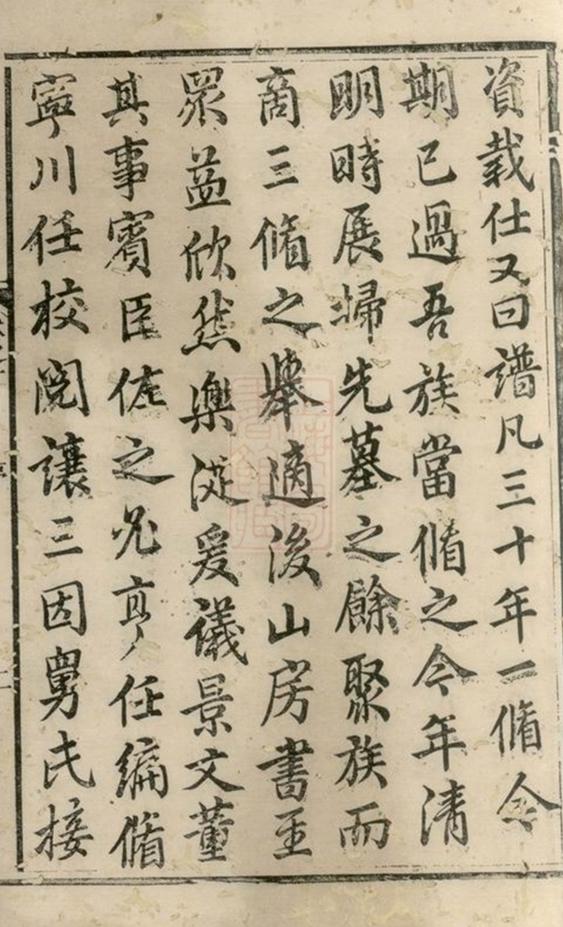 資載仕又曰譜凡三十年一脩今
期已過吾族當脩之今年清
明時展埽先墓之餘聚族而
商三脩之舉適後山房書至
眾益欣然樂從爰議景文董
其事賓臣佐之兆亨任編脩
寧川任校閱讓三因舅氏接